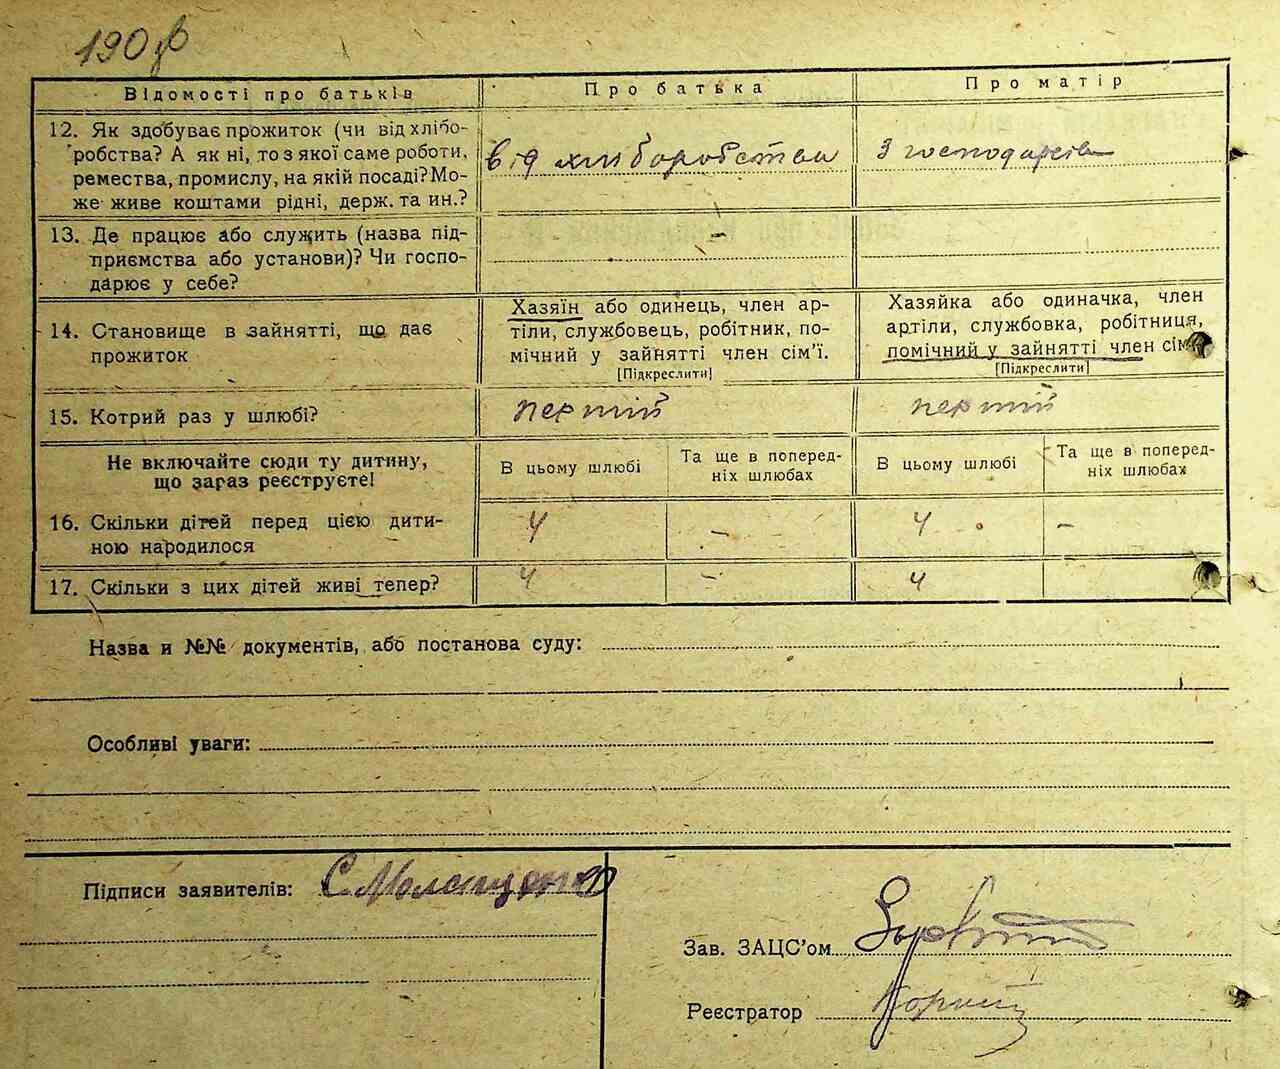 190 зв
Відомості про батьків
Про батька
Про матір
12. Як здобуває прожиток (чи від хлібо-
робства? А як ні, то з якої саме роботи,
ремества, промислу, на якій посаді? Мо-
же живе коштами рідні, держ. та ин.?
від хліборобства
з господарства
13. Де працює або служить (назва під-
приємства або установи)? Чи госпо-
дарює у себе?
-
14. Становище в зайнятті, що дає
прожиток
Хазяїн або одинець, член ар-
тіли, службовець, робітник, по-
мічний у зайнятті член сім'ї.
[Підкреслити]
Хазяйка або одиначка, член
артіли, службовка, робітниця,
помічний у зайнятті член сім
[Підкреслити]
15. Котрий раз у шлюбі?
перший
перший
Не включайте сюди ту дитину,
що зараз реєструєте!
В цьому шлюбі
Та ще в поперед-
ніх шлюбах
В цьому шлюбі
Та ще в поперед-
ніх шлюбах
16. Скільки дітей перед цією дити-
ною народилося
4
-
4
-
17. Скільки з цих дітей живі тепер?
4
-
4
Назва и №№ документів, або постанова суду:
Особливі уваги:
Підписи заявителів:
Зав. ЗАЦС'ом
Реєстратор